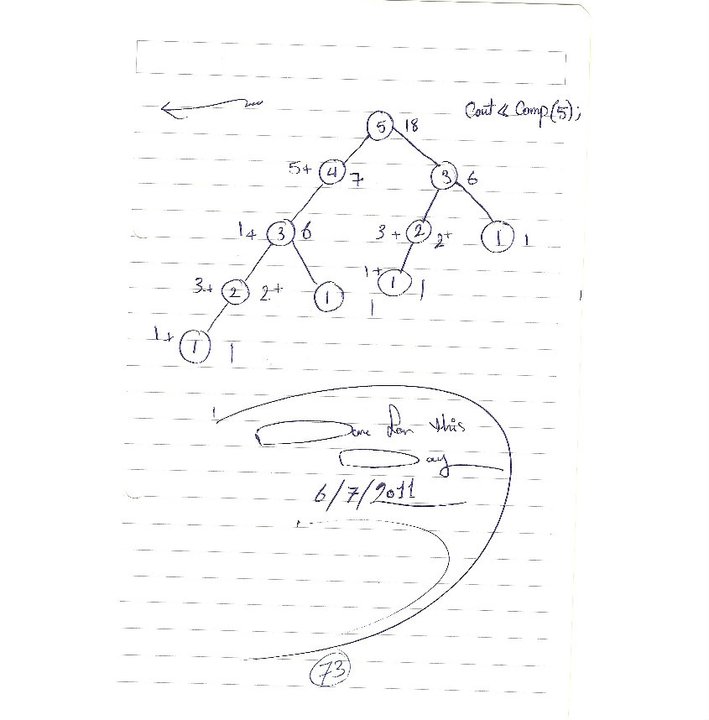 Cout << Comp(5);
5 18
5+ 4 7 3 6
1+ 3 6 3+ 2 2+ 1 1
3+ 2 2+ 1 1+ 1 1
1
1+ 1 1
Done for this
Day
6/7/2011
73